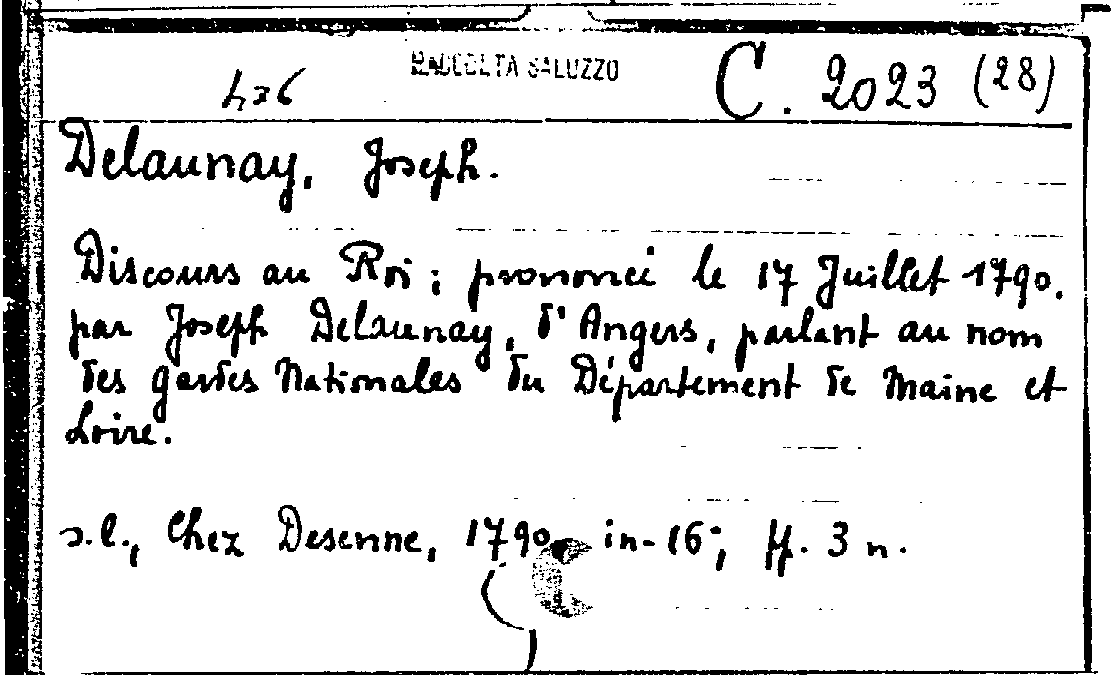 RACCOLTA SALUZZO
C. 2023 (28)
Delaunay, Joseph.
Discours au Roi; prononcé le 17 Juillet 1790.
par Joseph Delaunay, d'Angers, parlant au nom
des gardes Nationales du Département de Maine et
Loire.
s.l., Chez Desenne, 1790, in-16°, ff. 3 n.